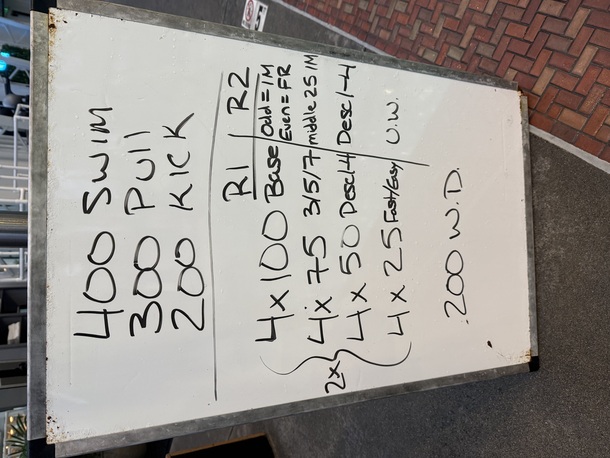 400 SWIM
300 Pull
200 KICK
R1 / R2
4 x 100 Base Odd = IM Even = FR
4 x 75 3/5/7 middle 25 IM
2x
4 x 50 Desc1-4 Desc1-4
4 x 25 Fast/Easy U.W.
200 W.D.